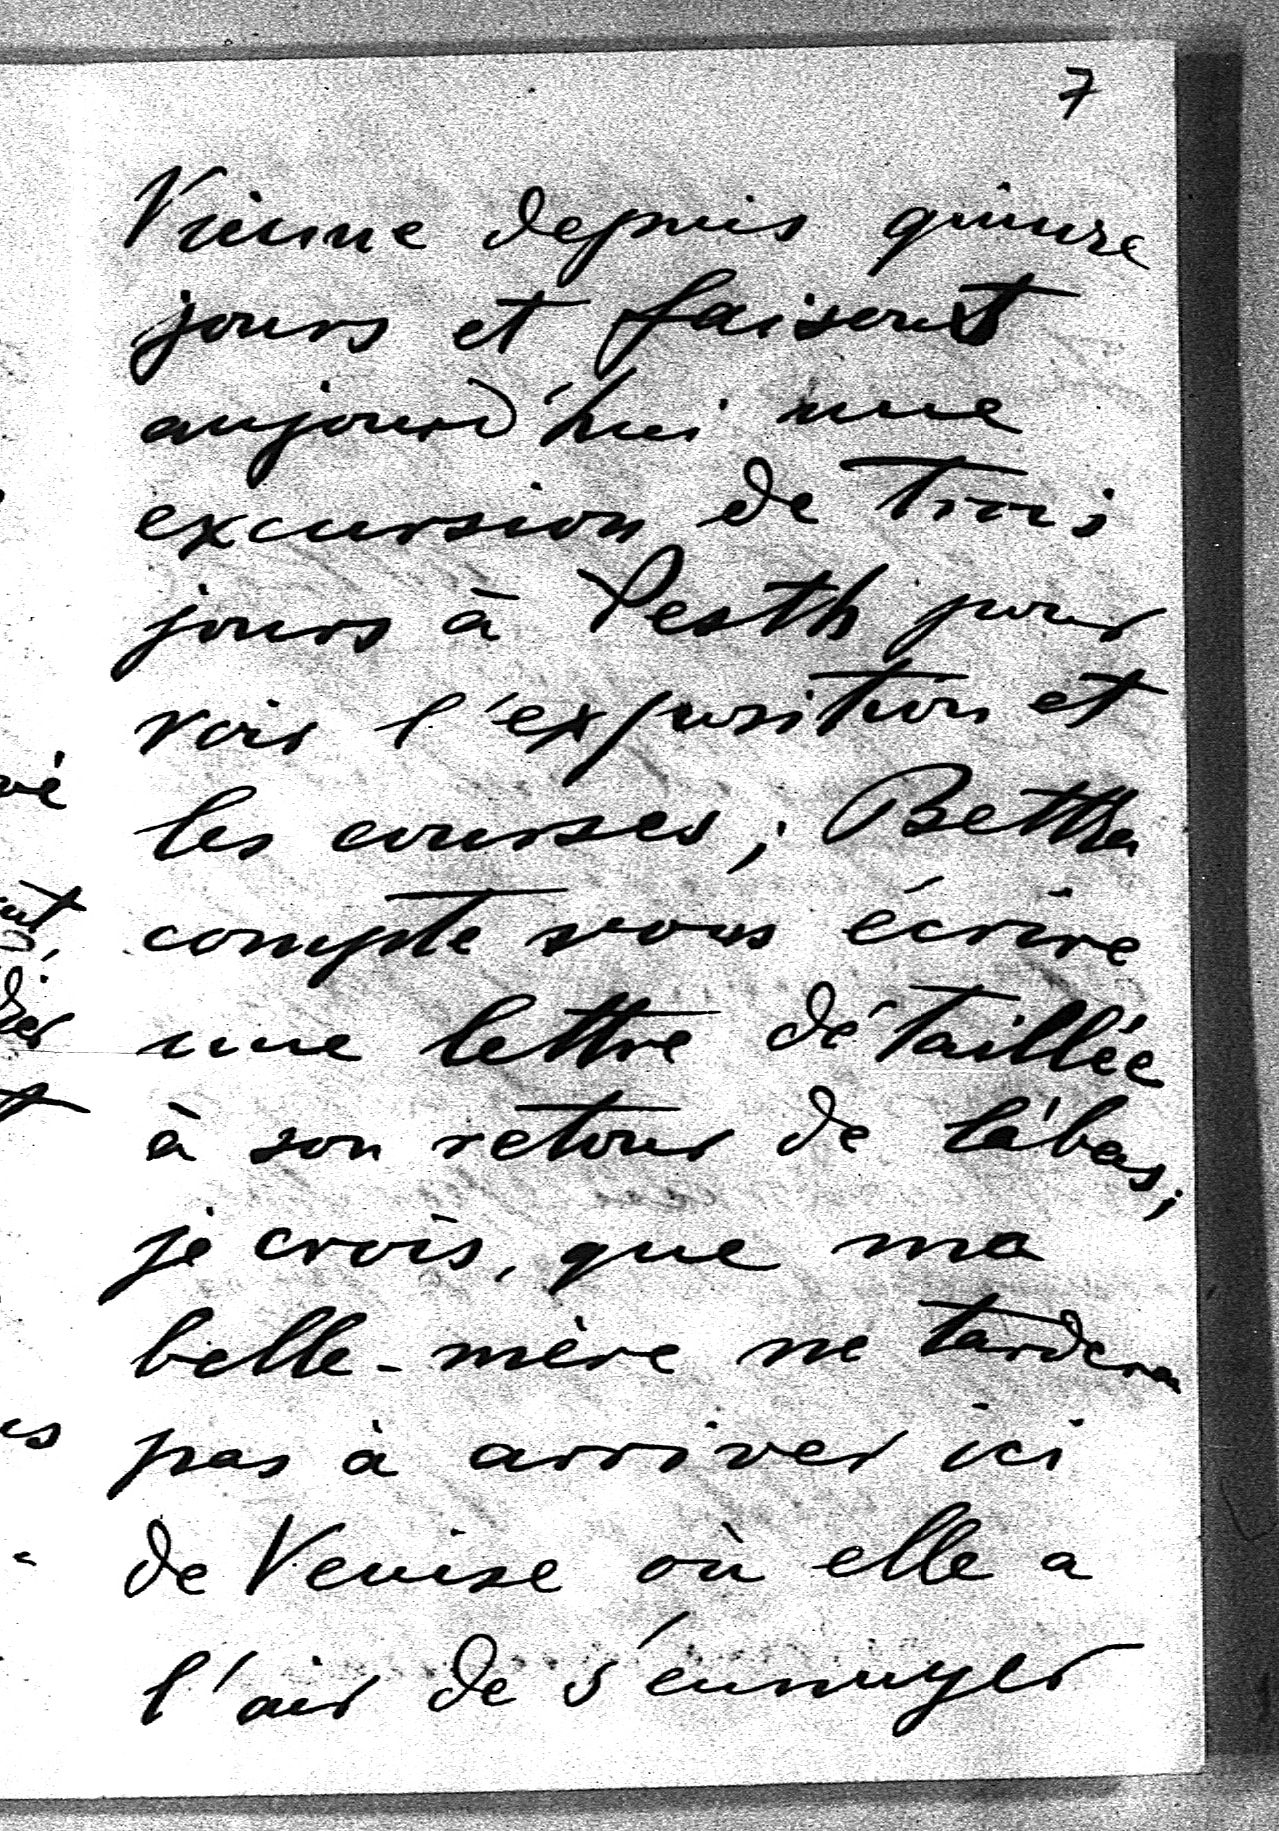 7
Vienne depuis quinze
jours et faisont
aujourd'hui une
excursion de trois
jours à Pesth pour
voir l'exposition et
les courses; Bertha
compte vous écrire
une lettre détaillée
à son retour de là-bas;
je crois, que ma
belle-mère ne tardera
pas à arriver ici
de Venise où elle a
l'air de s'ennuyer